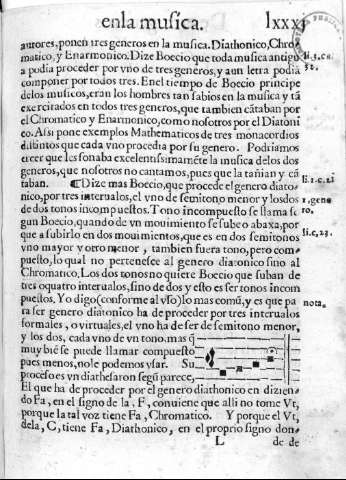 enla musica. lxxxj
autores, ponen tres generos en la musica. Diathonico, Chro-
matico, y Enarmonico. Dize Boecio que toda musica antigua
a podia proceder por vno de tres generos, y aun letra podia
componer por todos tres. En el tiempo de Boecio principe
delos musicos, eran los hombres tan sabios en la musica y tã
exercitados en todos tres generos, que tambien cãtaban por
el Chromatico y Enarmonico, como nosotros por el Diatoni
co. Assi pone exemplos Mathematicos de tres monacordios
distintos que cada vno procedia por su genero. Podriamos
creer que les sonaba excelentissimamẽte la musica delos dos
generos, que nosotros no cantamos, pues que la tañian y cã
taban. Dize mas Boecio, que procede el genero diato-
nico, por tres interualos, el vno de semitono menor y los dos
de dos tonos incompuestos. Tono incompuesto se llama se
gun Boecio, quando de vn mouimiento se sube o abaxa, por
que a subirlo en dos mouimientos, que es en dos semitonos
vno mayor y otro menor, tambien fuera tono, pero com-
puesto, lo qual no pertenesce al genero diatonico sino al
Chromatico. Los dos tonos no quiere Boecio que suban de
tres o quatro interualos, sino de dos y esto es ser tonos incom
puestos. Yo digo (conforme al vso) lo mas comũ, y es que pa
ra ser genero diatonico ha de proceder por tres interualos
formales, o virtuales, el vno ha de ser de semitono menor,
y los dos, cada vno de vn tono. mas q̃
muy biẽ se puede llamar compuesto
pues menos, nole podemos vsar. Su
processo es vn diathesaron segũ parece,
El que ha de proceder por el genero diathonico en dizien
do Fa, en el signo de la. F, conuiene que alli no tome Vt,
porque la tal voz tiene Fa, Chromatico. Y porque el Vt,
dela, C, tiene Fa, Diathonico, en el proprio signo don-
L de de
li.1.ca.
li.1.c.21
1.gene
ro,
li.c,23.
nota.